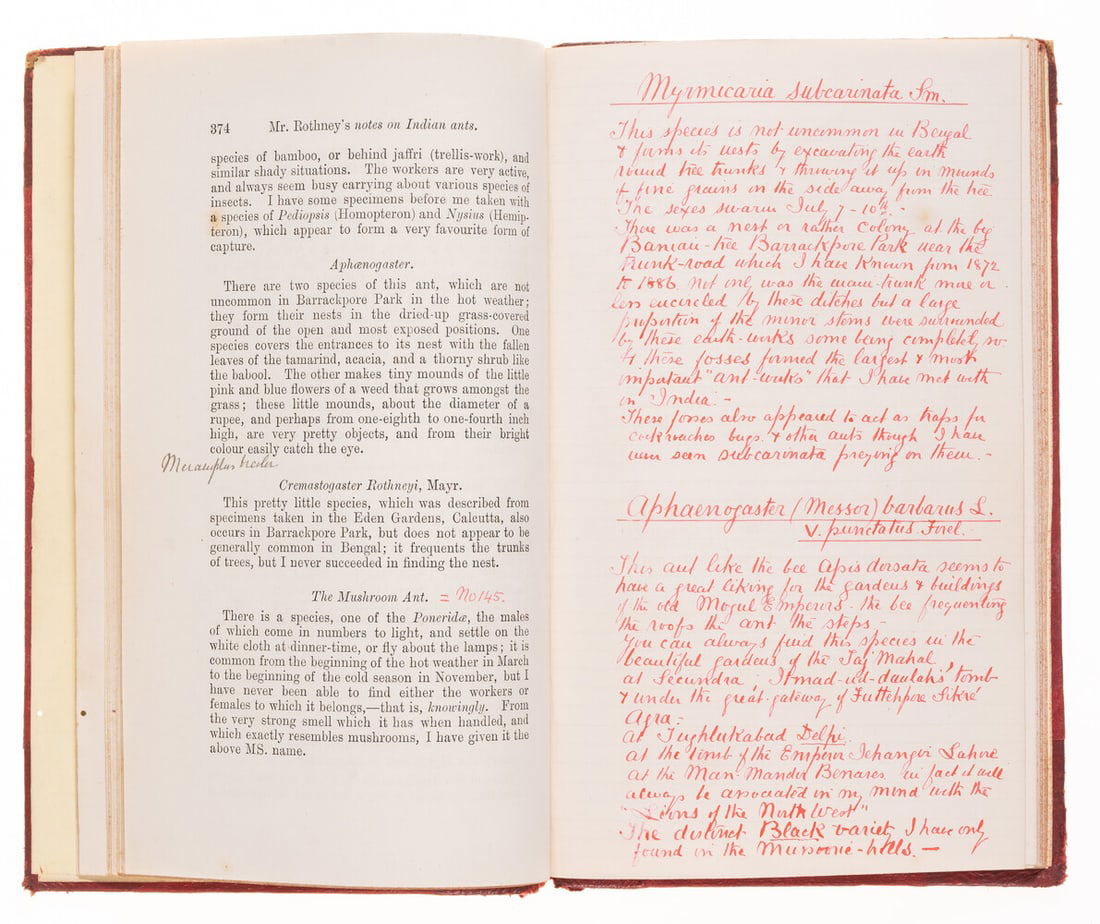 374 Mr. Rothney's notes on Indian ants.
species of bamboo, or behind jaffri (trellis-work), and
similar shady situations. The workers are very active,
and always seem busy carrying about various species of
insects. I have some specimens before me taken with
a species of Pediopsis (Homopteron) and Nysius (Hemip-
teron), which appear to form a very favourite form of
capture.
Aphænogaster.
There are two species of this ant, which are not
uncommon in Barrackpore Park in the hot weather;
they form their nests in the dried-up grass-covered
ground of the open and most exposed positions. One
species covers the entrances to its nest with the fallen
leaves of the tamarind, acacia, and a thorny shrub like
the babool. The other makes tiny mounds of the little
pink and blue flowers of a weed that grows amongst the
grass; these little mounds, about the diameter of a
rupee, and perhaps from one-eighth to one-fourth inch
high, are very pretty objects, and from their bright
colour easily catch the eye.
Meranoplus bicolor
Cremastogaster Rothneyi, Mayr.
This pretty little species, which was described from
specimens taken in the Eden Gardens, Calcutta, also
occurs in Barrackpore Park, but does not appear to be
generally common in Bengal; it frequents the trunks
of trees, but I never succeeded in finding the nest.
The Mushroom Ant. = No 145.
There is a species, one of the Poneridæ, the males
of which come in numbers to light, and settle on the
white cloth at dinner-time, or fly about the lamps; it is
common from the beginning of the hot weather in March
to the beginning of the cold season in November, but I
have never been able to find either the workers or
females to which it belongs,—that is, knowingly. From
the very strong smell which it has when handled, and
which exactly resembles mushrooms, I have given it the
above MS. name.
Myrmicaria subcarinata Sm.
This species is not uncommon in Bengal
& forms its nests by excavating the earth
round tree trunks & throwing it up in mounds
of fine grains on the side away from the tree
The sexes swarm July 7-10th.-
There was a nest or rather colony at the big
Banian-tree Barrackpore Park near the
trunk-road which I have known from 1872
to 1886 not only was the main-trunk more or
less encircled by these ditches but a large
proportion of the minor stems were surrounded
by these earth-works some being completely so
& these fosses formed the largest & most
important "ant-works" that I have met with
in India.-
These fosses also appeared to act as traps for
cockroaches bugs & other ants though I have
never seen subcarinata preying on them.-
Aphaenogaster (Messor) barbarus L.
v. punctatus. Forel.
This ant like the bee Apis dorsata seems to
have a great liking for the gardens & buildings
of the old Mogul Emperors - the bee frequenting
the roofs the ant the steps -
You can always find this species in the
beautiful gardens of the Taj Mahal,
at Secundra; Itmad-ud-daulah's tomb
& under the great gateway of Futtehpore Sikré
Agra:-
At Tughlukabad Delhi.
at the tomb of the Emperor Jehangir Lahore
at the Man Mandir Benares in fact it will
always be associated in my mind with the
"Lions of the North West"
The distinct Black variety I have only
found in the Mussoorie-hills.-